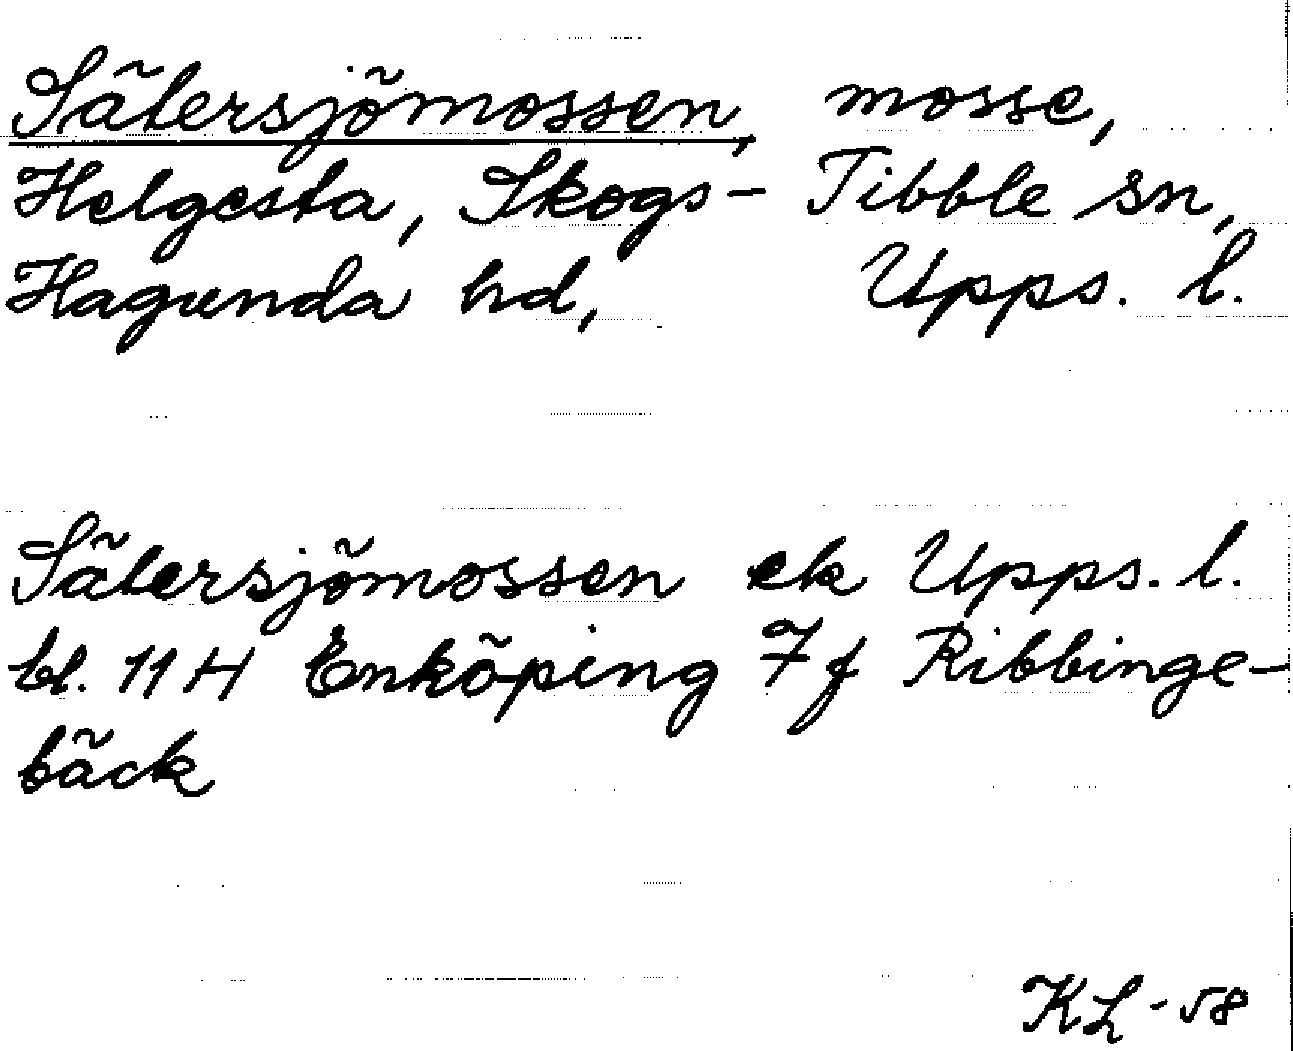 Sätersjömossen, mosse,
Helgesta, Skogs- Tibble sn,
Hagunda hd, Upps. l.
Sätersjömossen ek Upps. l.
bl. 11 H Enköping 7f Ribbinge-
bäck
KL -58